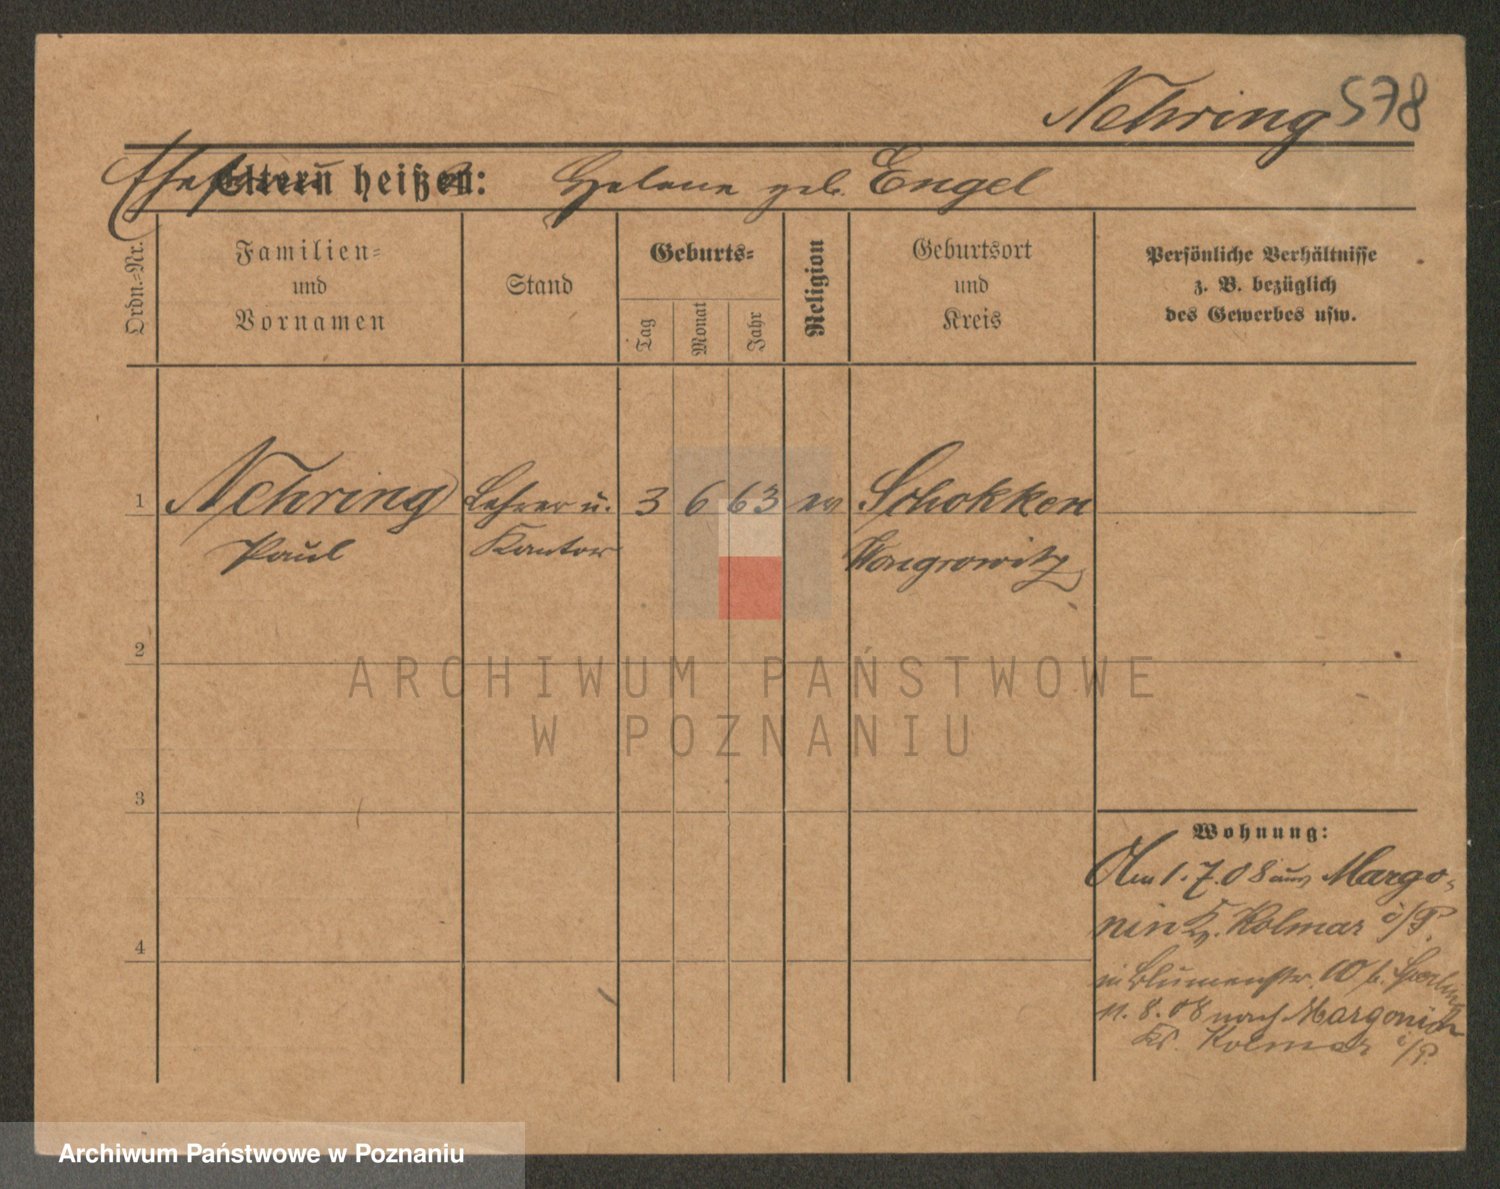 Nehring 578
Ehefrau Eltern heißen: Helene geb. Engel
Ordn.=Nr.
Familien=
und
Vornamen
Stand
Geburts=
Tag
Monat
Jahr
Religion
Geburtsort
und
Kreis
Persönliche Verhältnisse
z. B. bezüglich
des Gewerbes usw.
1 Nehring Lehrer u. 3 6 63 ev Schokken
Paul Kantor Wongrowitz
2
ARCHIWUM PAŃSTWOWE
W POZNANIU
3
Wohnung:
Am 1.7.08 aus Margo-
nin Kr. Kolmar i/P.
in Blumenstr. 10 b.
11.8.08 nach Margonin
Kr. Kolmar i/P.
4
Archiwum Państwowe w Poznaniu